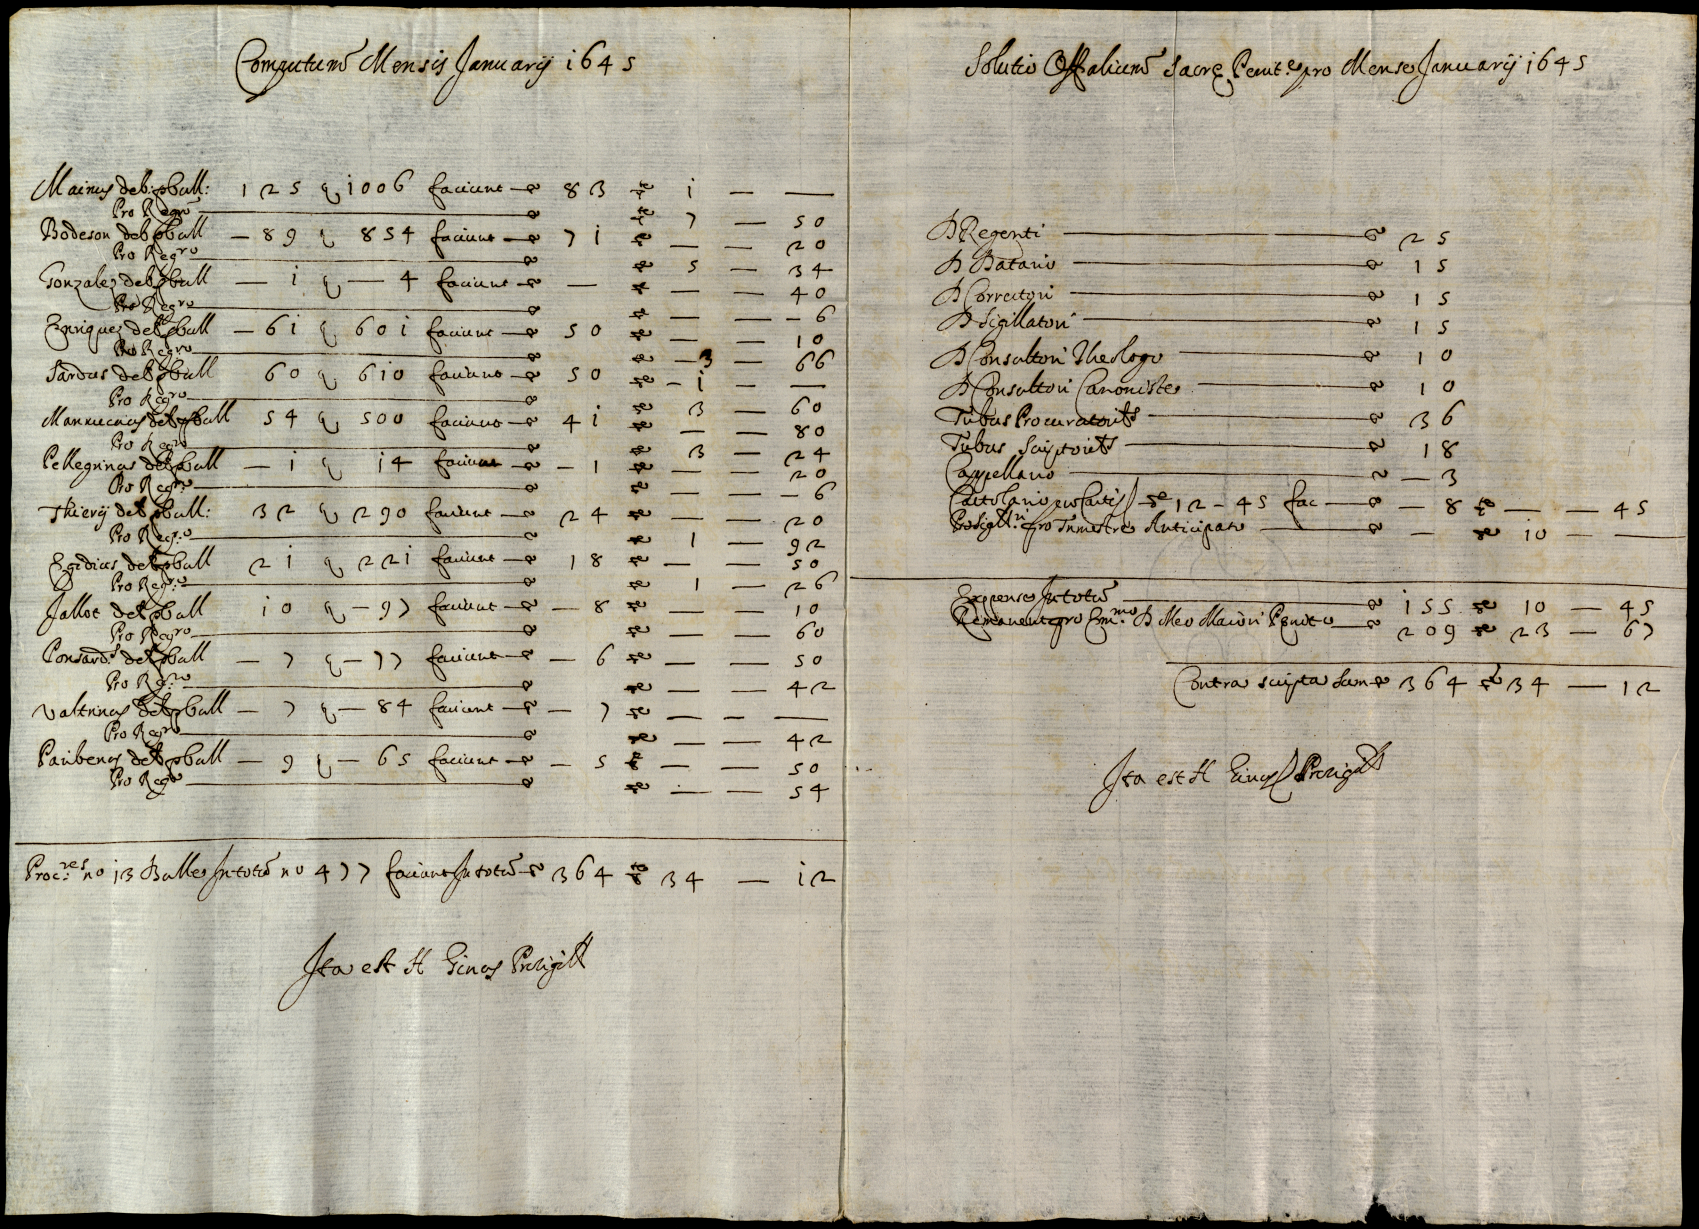 Computum Mensis Januarij 1645
Mainus deb: p bull: 125 q 1006 faciunt — 83 — 1 — —
Pro Regro — 7 — 50
Bodeson deb p bull — 89 q 854 faciunt — 71 — — — 20
Pro Regro — 5 — 34
Gonzales deb p bull — 1 q — 4 faciunt — — — — 40
Pro Regro — — — 6
Enriques deb p bull — 61 q 601 faciunt — 50 — — — 10
Pro Regro — 3 — 66
Sardus deb p bull 60 q 610 faciunt — 50 — 1 — —
Pro Regro — 3 — 60
Mannucius deb p bull 54 q 500 faciunt — 41 — — — 80
Pro Regro — 3 — 24
Pellegrinus deb p bull — 1 q 14 faciunt — 1 — — — 20
Pro Regro — — — 6
Thierij deb p bull: 32 q 290 faciunt — 24 — — — 20
Pro Reg:ro — 1 — 92
Egidius deb p bull 21 q 221 faciunt — 18 — — — 50
Pro Reg:ro — 1 — 26
Jallot deb p bull 10 q — 97 faciunt — 8 — — — 10
Pro Regro — — — 60
Ponsard deb p bull — 7 q — 77 faciunt — 6 — — — 50
Pro Reg:ro — — — 42
Valtrinus deb p bull — 7 q — 84 faciunt — 7 — — — —
Pro Regro — — — 42
deb p bull — 9 q — 65 faciunt — 5 — — — 50
Pro Regro — — — 54
Proc:res no 13 Bulle Intotum no 477 faciunt Intotum 364 34 — 12
Ita est H Ginus Prosigill
Solutio Offalium Sacre Penit:e pro Mense Januarij 1645
D Regenti — 25
D Datario — 15
D Correctori — 15
D Sigillatori — 15
D Consultori Theologo — 10
D Consultori Canoniste — 10
Tribus Procuratoribs — 36
Tribus Scriptoribs — 18
Cappellano — 3
Cartolario pro Cartis 12 - 45 fac — 8 — — 45
Prosigill:ri pro Trimestre Anticipato — — 10 — —
Expense Intotum — 155 10 — 45
Remanent pro Em:mo D Meo Maiori Penit:o — 209 23 — 67
Contra scripta sun 364 34 — 12
Ita est H Ginus Prosigill